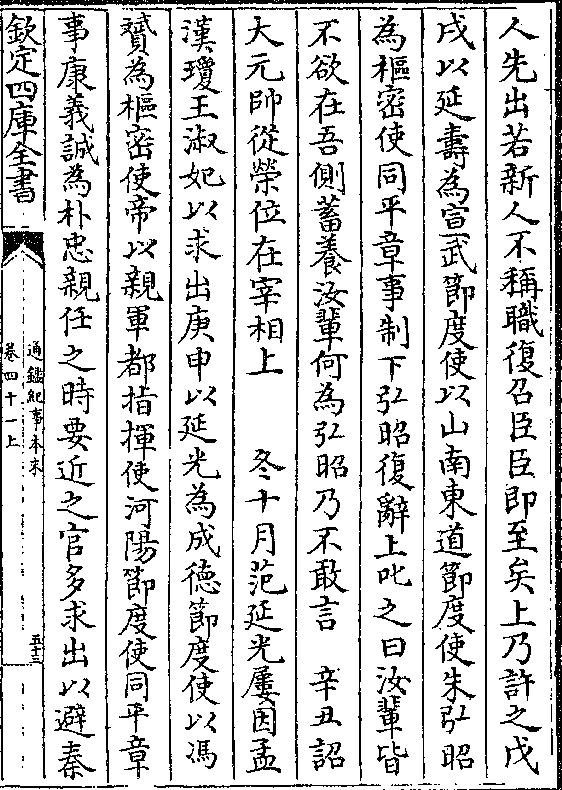 人先出若新人不稱職復召臣臣即至矣上乃許之戊
戌以延壽為宣武節度使以山南東道節度使朱弘昭
為樞密使同平章事制下弘昭復辭上叱之曰汝輩皆
不欲在吾側蓄養汝輩何為弘昭乃不敢言　辛丑詔
大元帥從榮位在宰相上　　冬十月范延光屢因孟
漢瓊王淑妃以求出庚申以延光為成德節度使以馮
贇為樞密使帝以親軍都指揮使河陽節度使同平章
事康義誠為朴忠親任之時要近之官多求出以避秦
欽定四庫全書
通鑑紀事本末
卷四十一上
五十三